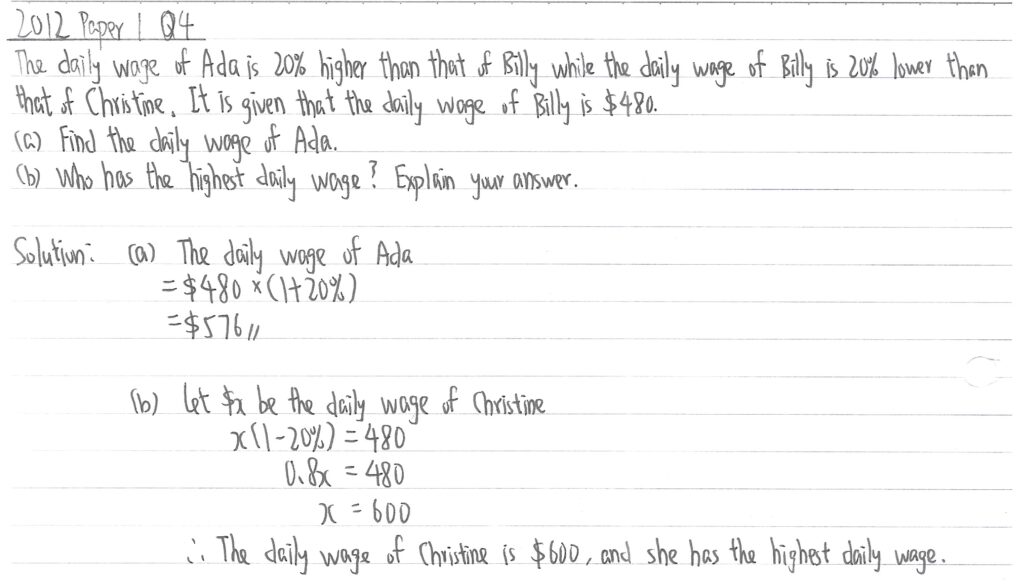 2012 Paper 1 Q4
The daily wage of Ada is 20% higher than that of Billy while the daily wage of Billy is 20% lower than
that of Christine. It is given that the daily wage of Billy is $480.
(a) Find the daily wage of Ada.
(b) Who has the highest daily wage? Explain your answer.
Solution: (a) The daily wage of Ada
= $480 × (1+20%)
= $576 //
(b) Let $x be the daily wage of Christine
x(1-20%) = 480
0.8x = 480
x = 600
∴ The daily wage of Christine is $600, and she has the highest daily wage.